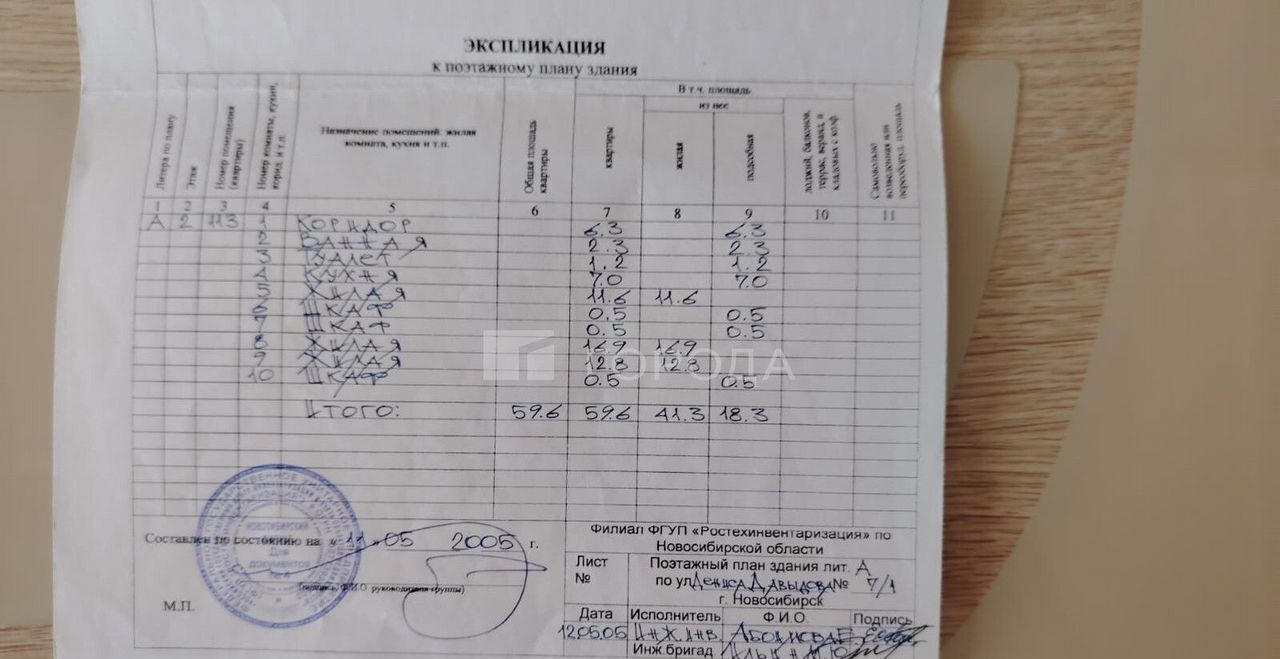 ЭКСПЛИКАЦИЯ
к поэтажному плану здания
Литера по плану
Этаж
Номер помещения (квартиры)
Номер комнаты, кухни, корид. и т.п.
Назначение помещений: жилая комната, кухня и т.п.
Общая площадь квартиры
В т.ч. площадь
квартиры
из нее
жилая
подсобная
лоджий, балконов, террас, веранд, и кладовых с коэф.
Самовольно возведенная или переоборуд. площадь
1 2 3 4 5 6 7 8 9 10 11
А 2 113 1 КОРИДОР 6.3 6.3
2 ВАННАЯ 2.3 2.3
3 ТУАЛЕТ 1.2 1.2
4 КУХНЯ 7.0 7.0
5 ЖИЛАЯ 11.6 11.6
6 ШКАФ 0.5 0.5
7 ШКАФ 0.5 0.5
8 ЖИЛАЯ 16.9 16.9
9 ЖИЛАЯ 12.8 12.8
10 ШКАФ 0.5 0.5
ИТОГО: 59.6 59.6 41.3 18.3
ГОРОДА
НОВОСИБИРСКИЙ
Для
ДОКУМЕНТОВ
Составлен по состоянию на «11» 05 2005 г.
(подпись, Ф.И.О руководителя группы)
М.П.
Филиал ФГУП «Ростехинвентаризация» по
Новосибирской области
Лист
№
Поэтажный план здания лит. А
по ул Дениса Давыдова № 7/1
г. Новосибирск
Дата Исполнитель Ф.И.О. Подпись
12.05.05 ИНЖ.ИНВ.
Инж.бригад